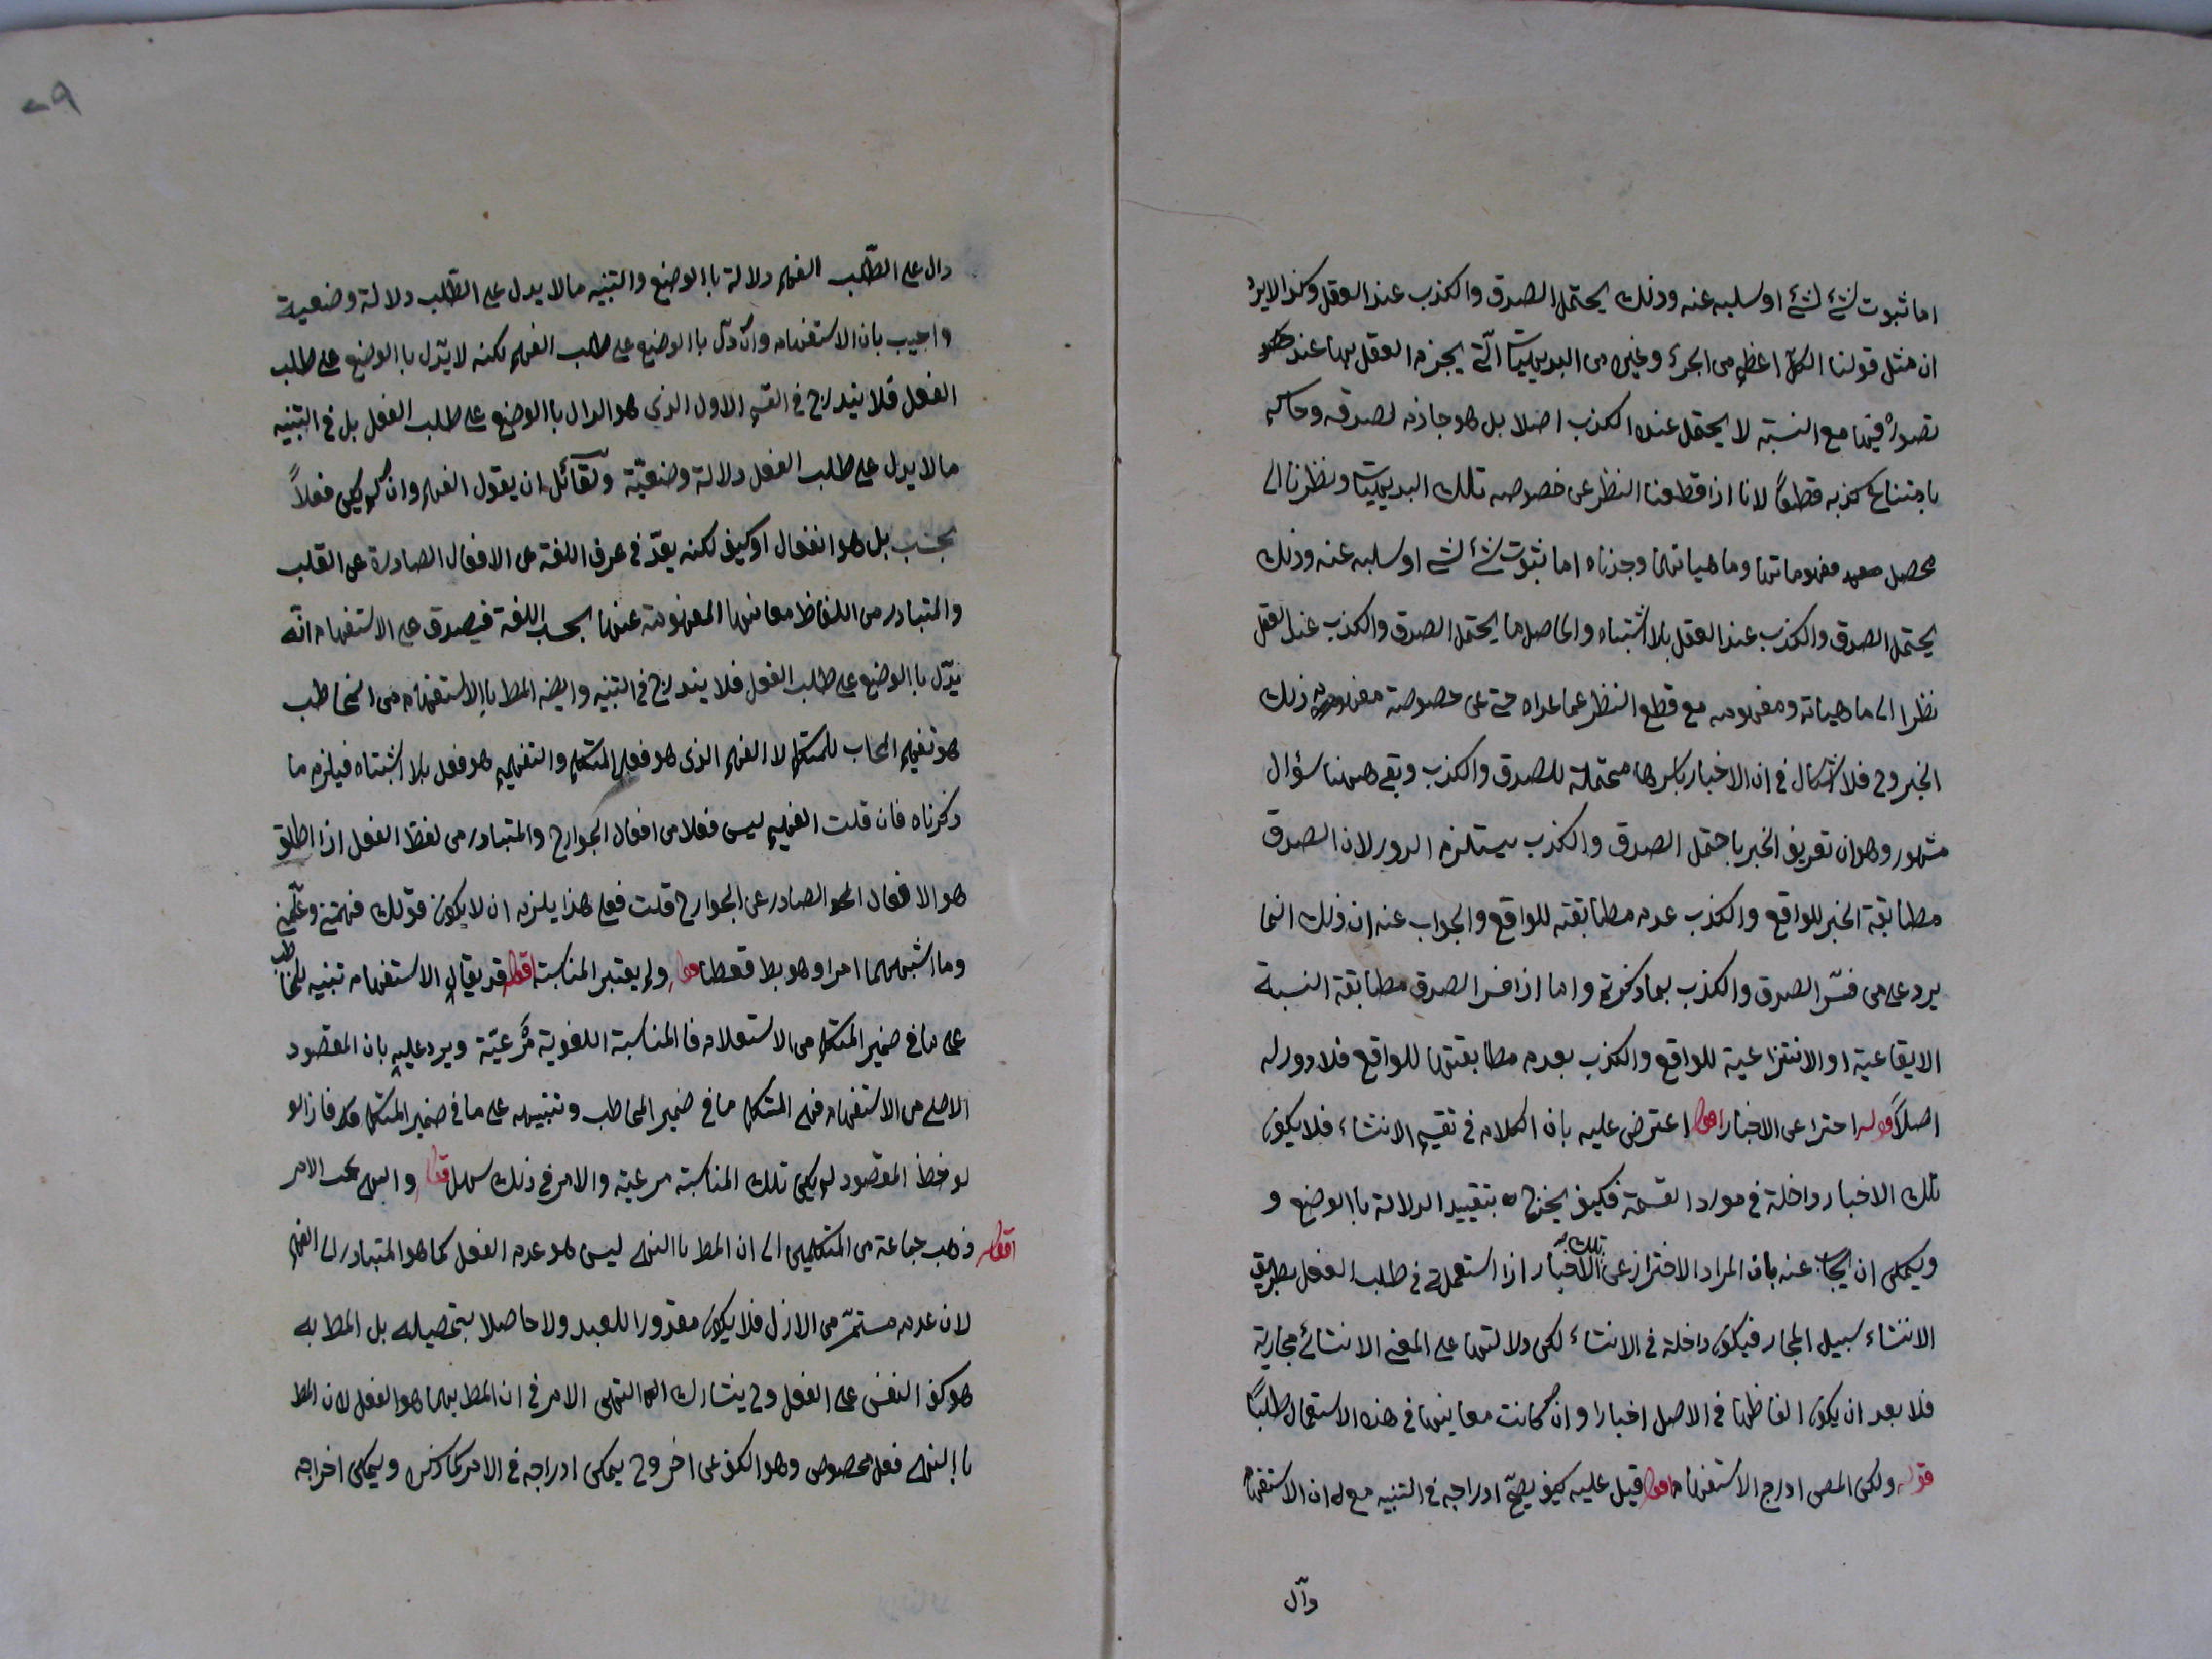 اما ثبوت شئ لشئ او سلبه عنه وذلك يحتمل الصدق والكذب عند العقل وكذا لا يرد
ان مثل قولنا الكل اعظم من الجزء وغيره من البديهيات التى يجزم العقل بها عند
تصور فيها مع النسبة لا يحتمل عنده الكذب اصلا بل هو جازم لصدقه وحاكم
بامتناع كذبه قطعا لانا اذا قطعنا النظر عن خصوصه تلك البديهيات ونظرنا الى
محصل مفهوماتها وماهياتها وجدناه اما ثبوت شئ لشئ او سلبه عنه وذلك
يحتمل الصدق والكذب عند العقل بلا اشتباه والحاصل ما يحتمل الصدق والكذب عند العقل
نظرا الى ماهياته ومفهومه مع قطع النظر عما عداه حتى عن خصوصة مفهوم ذلك
الخبر وح فلا اشكال فى ان الاخبار باسرها محتملة للصدق والكذب وبقى ههنا سؤال
مشهور وهو ان تعريف الخبر باحتمل الصدق والكذب يستلزم الدور لان الصدق
مطابقة الخبر للواقع والكذب عدم مطابقته للواقع والجواب عنه ان ذلك انما
يرد على من فسر الصدق والكذب بما ذكرتم واما اذا فسر الصدق مطابقة النسبة
الايقاعية او الانتزاعية للواقع والكذب بعدم مطابقتها للواقع فلا دور له
اصلا قوله احترا عن الاخبار اقول اعترض عليه بان الكلام فى تقسيم الانشاء فلا يكون
تلك الاخبار داخلة فى مورد القسمة فكيف يخرج بتقييد الدلالة باالوضع و
ويمكن ان يجاب عنه بان المراد الاحتراز عن تلك الاخبار اذا استعملت فى طلب الفعل بطريق
الانشاء سبيل المجاز فيكون داخلة فى الانشاء لكن دلالتها على المعنى الانشائى مجازية
فلا بعد ان يكون الفاظها فى الاصل اخبارا وان كانت معانيها فى هذه الاستعمال طلبًا
قوله ولكن المص ادرج الاستفهام اقول قيل عليه كيف يصح ادراجه فى التنبيه مع ان الاستفهام
دال
دال على الطلب الفهم دلالة باالوضع والتنبيه ما لا يدل على الطلب دلالة وضعية
واجيب بان الاستفهام وان دل باالوضع على طلب الفهم لكنه لا يدل باالوضع على طلب
الفعل فلا يندرج فى القسم الاول الذى هو الدال باالوضع على طلب الفعل بل فى التنبيه
ما لا يدل على طلب الفعل دلالة وضعية ولقائل ان يقول الفهم وان لم يكن فعلاً
بحسب بل هو انفعال او كيف لكنه يعد فى عرف اللغة عن الافعال الصادرة عن القلب
والمتبادر من اللفاظ معانيها المفهومة عنها بحسب اللغة فيصدق على الاستفهام انه
يدل باالوضع على طلب الفعل فلا يندرج فى التنبيه وايضه المط باالاستفهام من المخاطب
هو تفهيم المخاب للمتكلم لا الفهم الذى هو فعل المتكلم والتفهيم هو فعل بلا اشتباه فيلزم ما
ذكرناه فان قلت الفهيم ليس فعلا من افعال الجوارح والمتبادر من لفظ الفعل اذا اطلق
هو الافعال الصادر عن الجوارح قلت فعلى هذا يلزم ان لا يكون قولك فهمنى وعلمنى
وما اشبههما امرا وهو بط قطعا قوله ولم يعتبر المناسبة اقول قد يقال الاستفهام تنبيه للمخاطب
على ما فى ضمير المتكلم من الاستعلام فا المناسبة اللغوية مرعية ويرد عليه بان المقصود
الاصلى من الاستفهام فهم المتكلم ما فى ضمير المخاطب وتنبيهه على ما فى ضمير المتكلم فاذا لو
لوخظ المقصود لم يكن تلك المناسبة مرعية والامر فى ذلك سهل قوله والنهى تحت الامر
اقول ذهب جماعة من المتكلمين الى ان المط باالنهى ليس هو عدم الفعل كما هو المتبادر الى الفهم
لان عدمه مستمر من الازل فلا يكون مقدورا للعبد ولا حاصلا بتحصيله بل المط به
هو كف النفس على الفعل وح يشارك النهى الامر فى ان المط بهما هو الفعل لان المط
باالنهى فعل مخصوص وهو الكف عن اخر وح يمكن ادراجه فى الامر كما ذكره ويمكن اخراجه